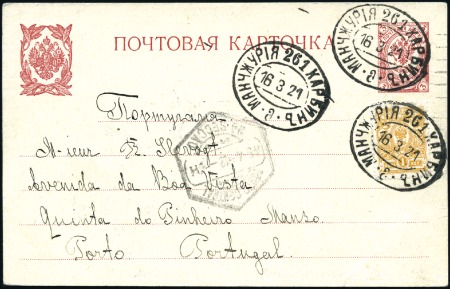 ПОЧТОВАЯ КАРТОЧКА
МАНЧЖУРІЯ 261 ХАРБИНЪ
16 3 21
МАНЧЖУРІЯ 261 ХАРБИНЪ
16 3 21
МАНЧЖУРІЯ 261 ХАРБИНЪ
16 3 21
Португалі
M-ieur Fr. Kevogt
Avenida da Boa Vista
Quinta do Pinheiro Manso
Porto Portugal.